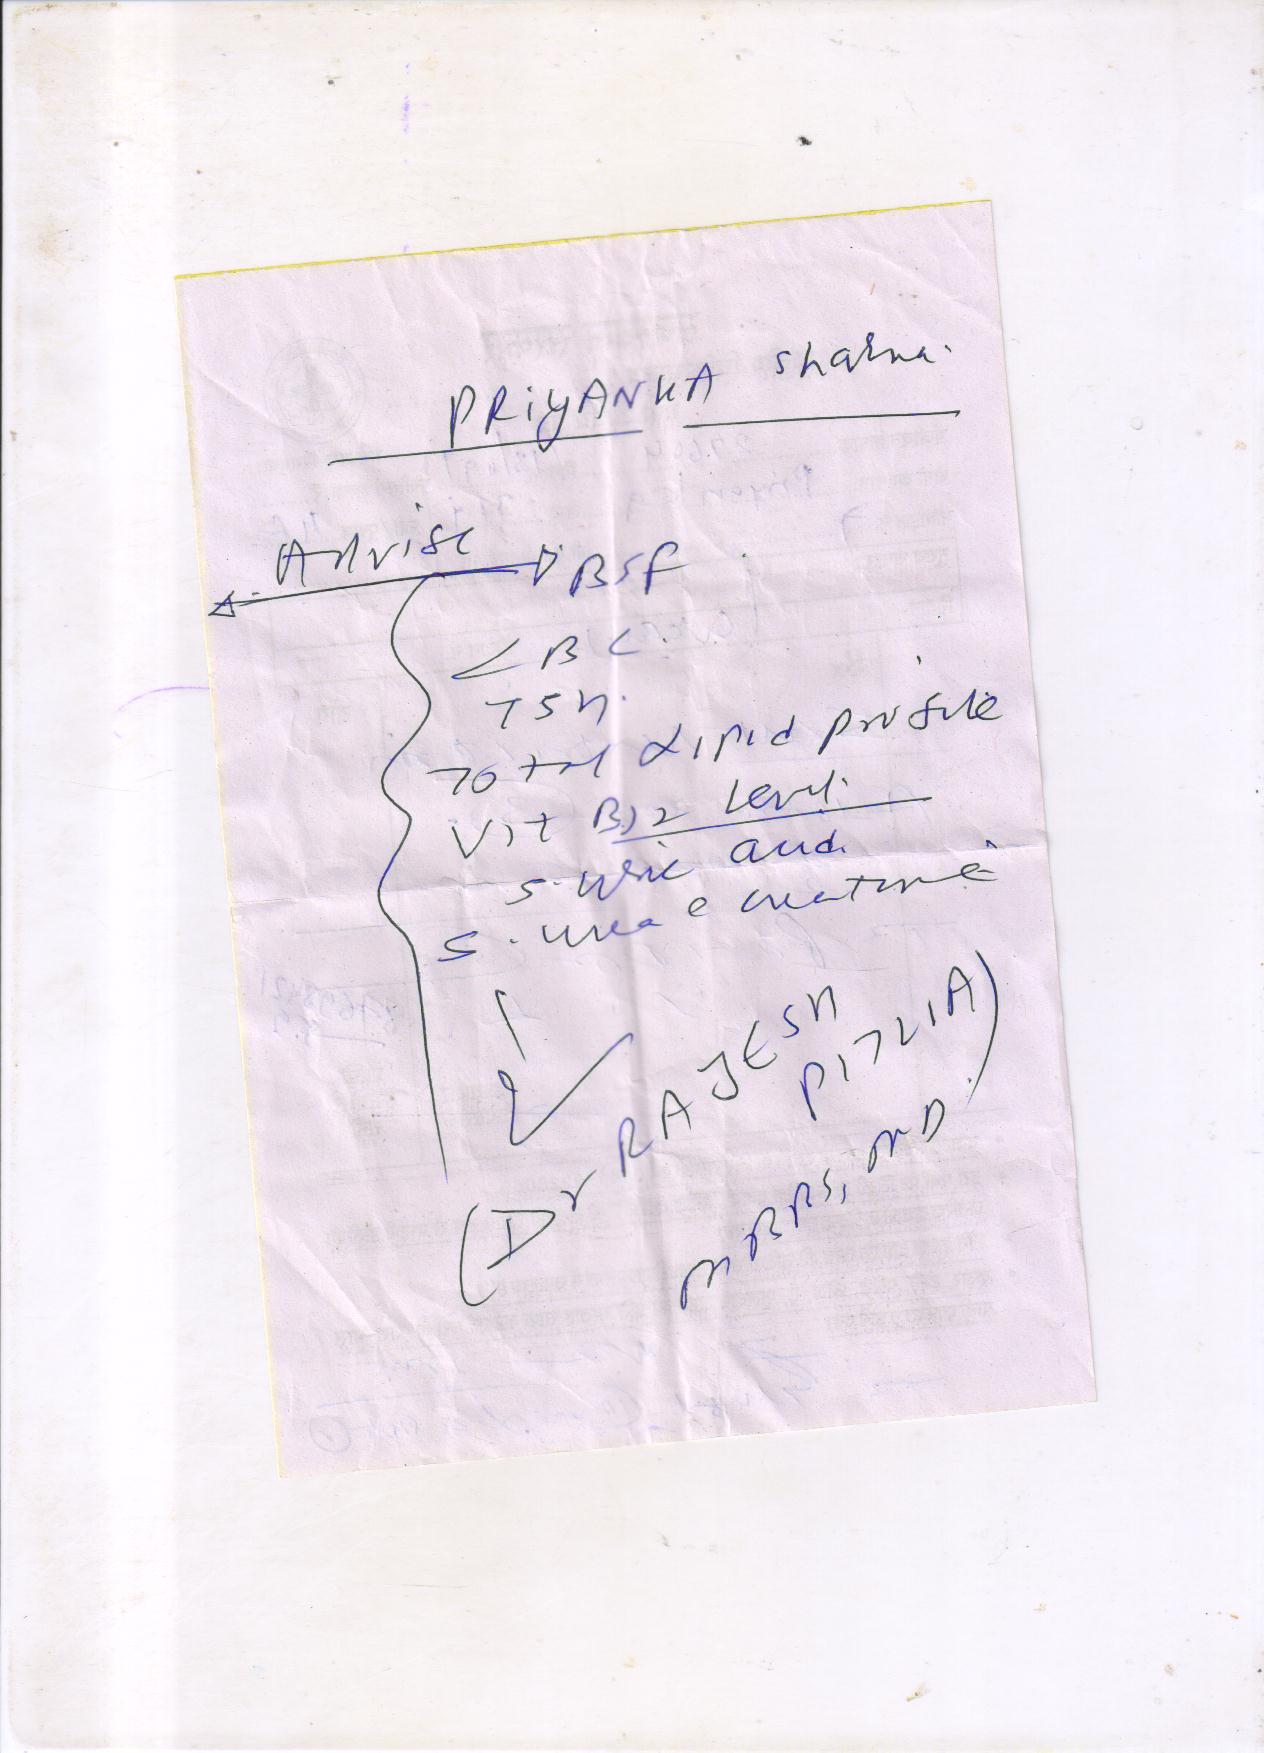 PRiYANKA Sharma.
Advise
BSF
CBC
TSH.
Total Lipid profile
Vit B12 level.
S. uric acid
S. urea e creatine
(Dr RAJESH
PITLIA)
MBBS, MD